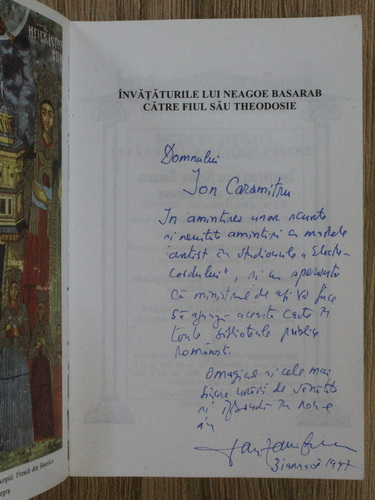 ÎNVĂȚĂTURILE LUI NEAGOE BASARAB
CĂTRE FIUL SĂU THEODOSIE
Domnului
Ion Caramitru
In amintirea unor scurte
și neuitate amintiri cu marele
artist în studiourile „Electre-
cordului", și cu speranța
că ministrul de azi va face
să ajungă această carte în
toate bibliotecile publice
românești.
Omagiile și cele mai
bune urări de sănătate
și izbândă în noul
an
3 ianuarie 1997
Frescă din Biserica